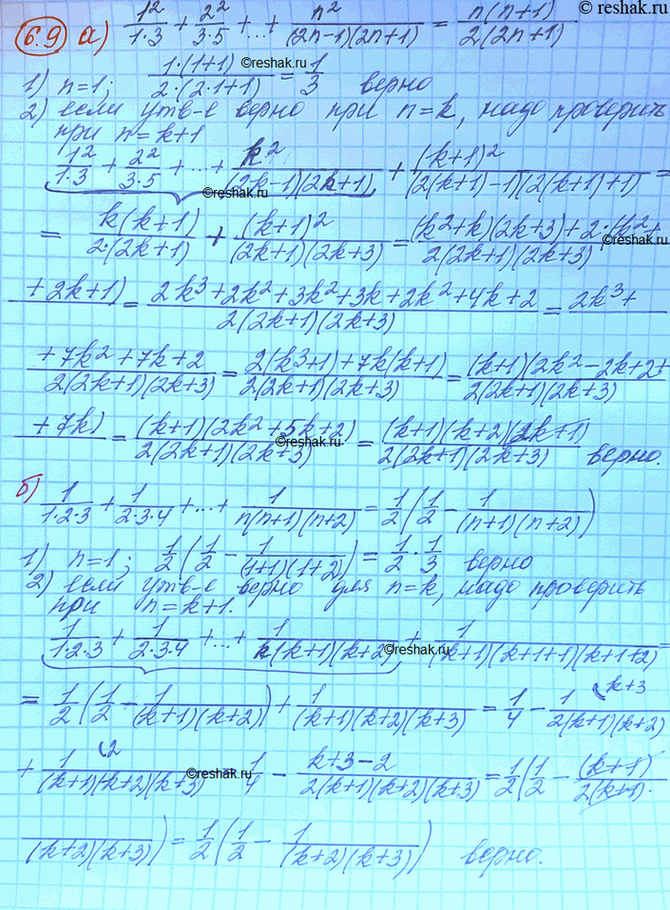 © reshak.ru
6.9 а) 1²/(1·3) + 2²/(3·5) + ... + n²/((2n-1)(2n+1)) = n(n+1)/(2(2n+1))
©reshak.ru
1) n=1; 1·(1+1)/(2·(2·1+1)) = 1/3 верно
2) если утв-е верно при n=k, надо проверить
при n=k+1
1²/(1·3) + 2²/(3·5) + ... + k²/((2k-1)(2k+1)) + (k+1)²/((2(k+1)-1)(2(k+1)+1)) =
©reshak.ru
= k(k+1)/(2·(2k+1)) + (k+1)²/((2k+1)(2k+3)) = (k²+k)(2k+3)+2·(k²+ / 2(2k+1)(2k+3)
©reshak.ru
+2k+1) = (2k³+2k²+3k²+3k+2k²+4k+2)/(2(2k+1)(2k+3)) = 2k³+
+7k²+7k+2 / 2(2k+1)(2k+3) = (2(k³+1)+7k(k+1))/(2(2k+1)(2k+3)) = (k+1)(2k²-2k+2+ / 2(2k+1)(2k+3)
+7k) = (k+1)(2k²+5k+2)/(2(2k+1)(2k+3)) = (k+1)(k+2)(2k+1)/(2(2k+1)(2k+3)) верно.
©reshak.ru
б) 1/(1·2·3) + 1/(2·3·4) + ... + 1/(n(n+1)(n+2)) = 1/2(1/2 - 1/((n+1)(n+2)))
1) n=1; 1/2(1/2 - 1/((1+1)(1+2))) = 1/2·1/3 верно
2) если утв-е верно для n=k, надо проверить
при n=k+1.
1/(1·2·3) + 1/(2·3·4) + ... + 1/(k(k+1)(k+2)) + 1/((k+1)(k+1+1)(k+1+2)) =
©reshak.ru
= 1/2(1/2 - 1/((k+1)(k+2))) + 1/((k+1)(k+2)(k+3)) = 1/4 - 1/(2(k+1)(k+2)) (k+3
+ 1/((k+1)(k+2)(k+3)) (2 1/4 - (k+3-2)/(2(k+1)(k+2)(k+3)) = 1/2(1/2 - (k+1)/2(k+1)·
©reshak.ru
/(k+2)(k+3)) = 1/2(1/2 - 1/((k+2)(k+3))) верно.